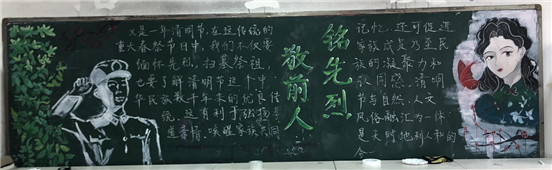 又是一年清明节,在这传统的
重大春祭节日中,我们不仅要
缅怀先烈,扫墓祭祖,
也要了解清明节这个中
华民族数千年来的优良传
统,这有利于弘扬孝
道亲情,唤醒家族共同
铭先烈
敬前人
记忆,还可促进
家族成员乃至民
族的凝聚力和
认同感。清明
节与自然、人文
风俗融汇为一体,
是天时地利人和的
合